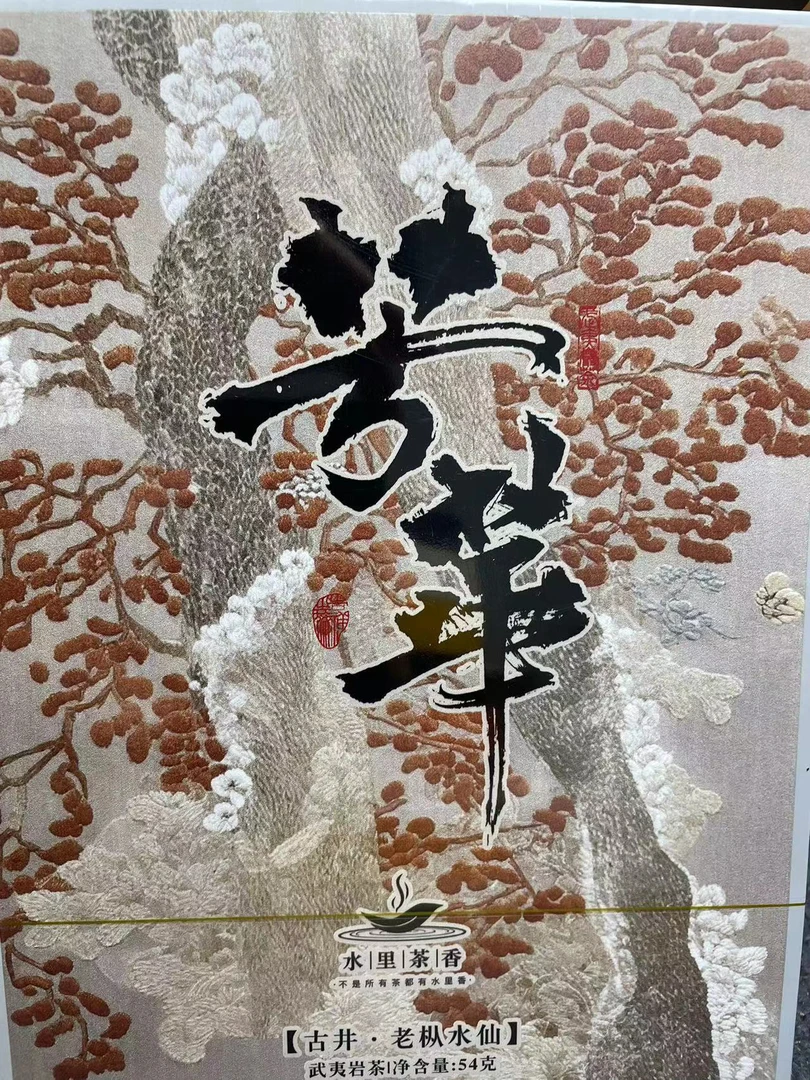 芳華
水|里|茶|香
·不是所有茶都有水里香·
【古井·老枞水仙】
武夷岩茶|净含量:54克